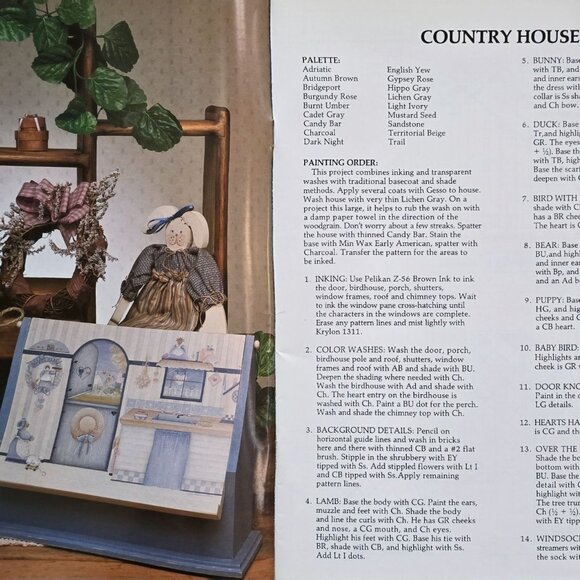 COUNTRY HOUSE
PALETTE:
Adriatic
Autumn Brown
Bridgeport
Burgundy Rose
Burnt Umber
Cadet Gray
Candy Bar
Charcoal
Dark Night
English Yew
Gypsey Rose
Hippo Gray
Lichen Gray
Light Ivory
Mustard Seed
Sandstone
Territorial Beige
Trail
PAINTING ORDER:
This project combines inking and transparent
washes with traditional basecoat and shade
methods. Apply several coats with Gesso to house.
Wash house with very thin Lichen Gray. On a
project this large, it helps to rub the wash on with
a damp paper towel in the direction of the
woodgrain. Don't worry about a few streaks. Spatter
the house with thinned Candy Bar. Stain the
base with Min Wax Early American, spatter with
Charcoal. Transfer the pattern for the areas to
be inked.
1. INKING: Use Pelikan Z-56 Brown Ink to ink
the door, birdhouse, porch, shutters,
window frames, roof and chimney tops. Wait
to ink the window pane cross-hatching until
the characters in the windows are complete.
Erase any pattern lines and mist lightly with
Krylon 1311.
2. COLOR WASHES: Wash the door, porch,
birdhouse pole and roof, shutters, window
frames and roof with AB and shade with BU.
Deepen the shading where needed with Ch.
Wash the birdhouse with Ad and shade with
Ch. The heart entry on the birdhouse is
washed with Ch. Paint a BU dot for the perch.
Wash and shade the chimney top with Ch.
3. BACKGROUND DETAILS: Pencil on
horizontal guide lines and wash in bricks
here and there with thinned CB and a #2 flat
brush. Stipple in the shrubbery with EY
tipped with Ss. Add stippled flowers with Lt I
and CB tipped with Ss.Apply remaining
pattern lines.
4. LAMB: Base the body with CG. Paint the ears,
muzzle and feet with Ch. Shade the body
and line the curls with Ch. He has GR cheeks
and nose, a CG mouth, and Ch eyes.
Highlight his feet with CG. Base his tie with
BR, shade with CB, and highlight with Ss.
Add Lt I dots.
5. BUNNY: Base
with TB, and
and inner ears
the dress with
collar is Ss sha
and Ch bow.
6. DUCK: Base
Tr,and highli
GR. The eyes
+ ½). Base the
with TB, high
Base the scarf
deepen with C
7. BIRD WITH
shade with C
has a BR chee
The heart is C
8. BEAR: Base
BU,and highli
and inner ear
with Bp, and
and an Ad b
9. PUPPY: Base
HG, and high
cheeks and C
a CB heart.
10. BABY BIRD:
Highlights ar
cheek is GR w
11. DOOR KNO
Paint in the d
LG details.
12. HEARTS HA
is CG and th
13. OVER THE
Shade the bo
bottom with
BU. Base the
detail with C
highlight with
The tree trun
Ch (½ + ½).
with EY tipp
14. WINDSOCK
streamers wit
the sock with